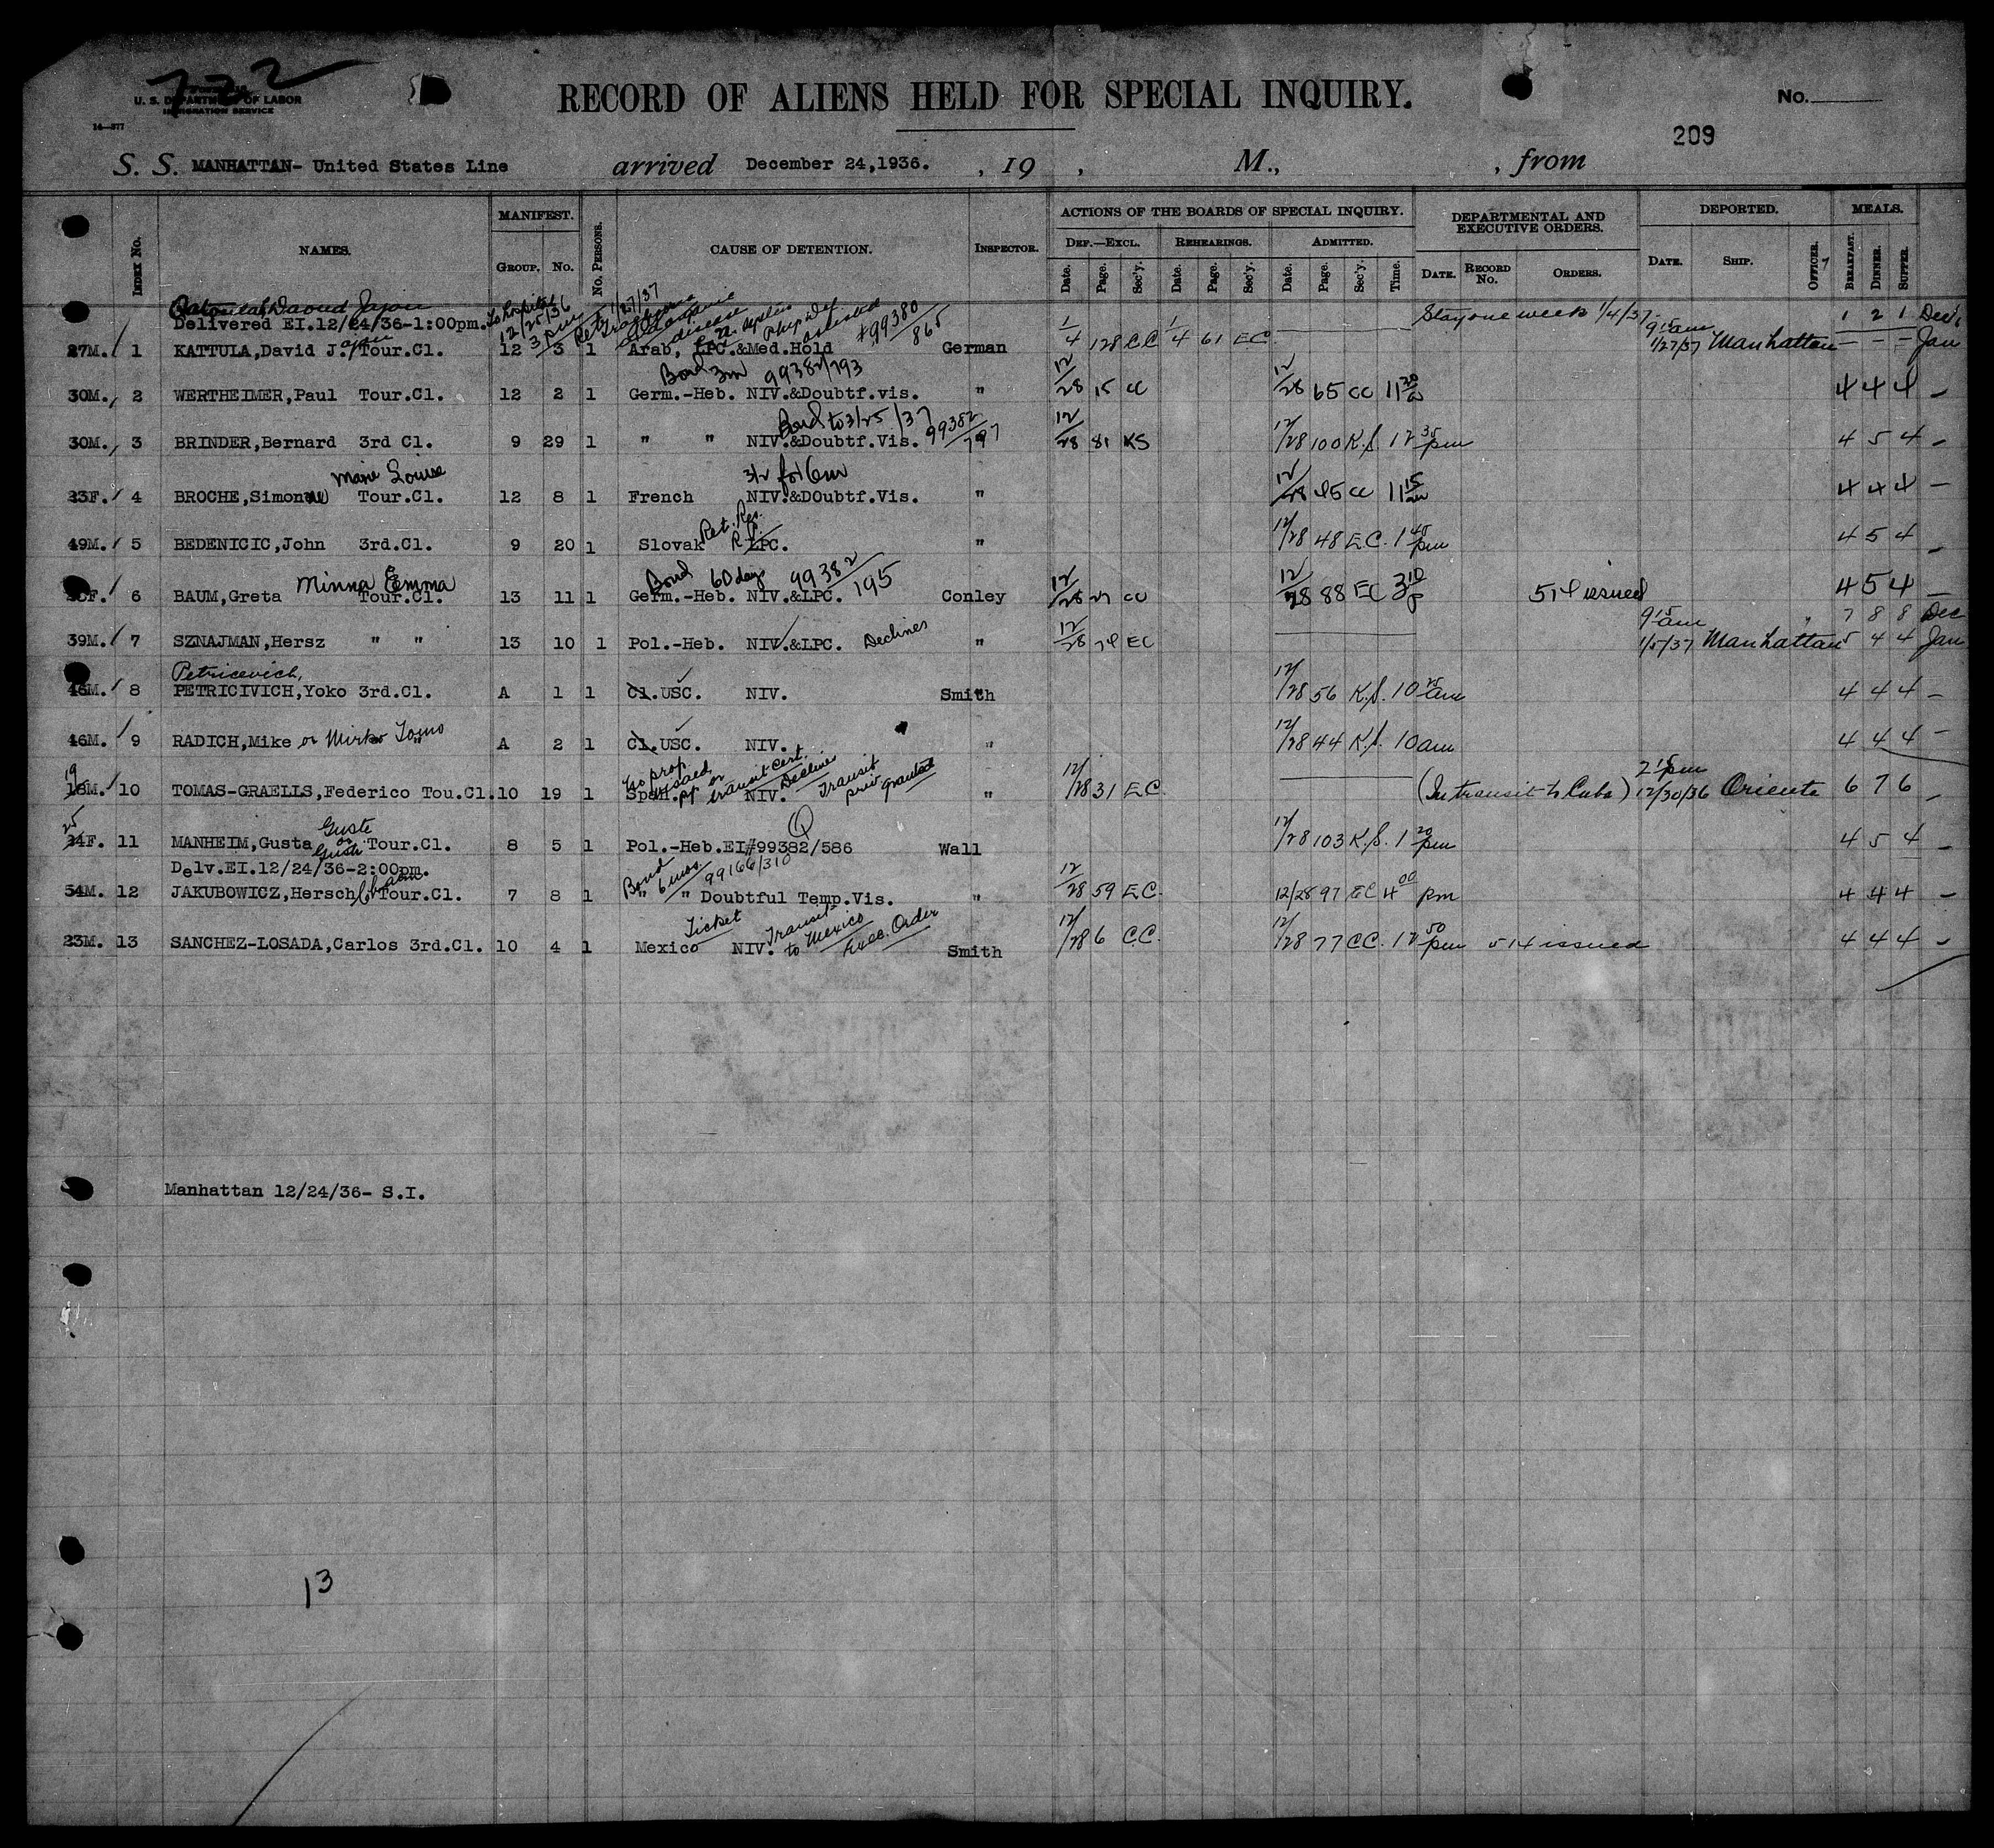 722
U. S. DEPARTMENT OF LABOR
IMMIGRATION SERVICE
14—577
RECORD OF ALIENS HELD FOR SPECIAL INQUIRY.
No.
209
S. S. MANHATTAN- United States Line arrived December 24,1936. , 19 , M., , from
Index No. NAMES. MANIFEST. Group. No. No. Persons. CAUSE OF DETENTION. Inspector. ACTIONS OF THE BOARDS OF SPECIAL INQUIRY. DEPARTMENTAL AND EXECUTIVE ORDERS. DEPORTED. MEALS.
Def.—Excl. Rehearings. Admitted.
Date. Page. Sec'y. Date. Page. Sec'y. Date. Page. Sec'y. Time. Date. Record No. Orders. Date. Ship. Officer. Breakfast. Dinner. Supper.
Daoud Stay one week 1/4/37 1 2 1
Delivered EI.12/24/36-1:00pm. To hospital 12/25/36 3 pm 1/27/37 disease #99380/865 9 15 am
27M. 1 KATTULA,David J. Tour.Cl. 12 3 1 Arab, LPC.&Med.Hold German 1/4 128 CC 1/4 61 EC 1/27/37 Manhattan - - - Jan
Bond 3m 99382/793
30M. 2 WERTHEIMER,Paul Tour.Cl. 12 2 1 Germ.-Heb. NIV.&Doubtf.vis. " 12/28 15 CC 12/28 65 CC 11 20 4 4 4 -
Bond to 3/25/37 99382/797
30M. 3 BRINDER,Bernard 3rd Cl. 9 29 1 " " NIV.&Doubtf.Vis. " 12/28 81 KS 12/28 100 K.S. 12 35 pm 4 5 4 -
Marie Louise
23F. 4 BROCHE,Simonne Tour.Cl. 12 8 1 French NIV.&DOubtf.Vis. " 12/28 45 CC 11 15 am 4 4 4 -
Ret. Res.
49M. 5 BEDENICIC,John 3rd.Cl. 9 20 1 Slovak LPC. " 12/28 48 E.C. 1 40 pm 4 5 4 -
Minna Emma Bond 60 days 99382/195
6 BAUM,Greta Tour.Cl. 13 11 1 Germ.-Heb. NIV.&LPC. Conley 12/28 27 CC 12/28 88 EC 3 10 p 514 issued 4 5 4 -
9 15 am 7 8 8 Dec
39M. 7 SZNAJMAN,Hersz " " 13 10 1 Pol.-Heb. NIV.&LPC. Declines " 12/28 74 EC Manhattan 5 4 4 Jan
Petricevich,
46M. 8 PETRICIVICH,Yoko 3rd.Cl. A 1 1 Cl.USC. NIV. Smith 12/28 56 K.S. 10 25 am 4 4 4 -
46M. 9 RADICH,Mike or Mirko Tomo " A 2 1 Cl.USC. NIV. " 12/28 44 K.S. 10 am 4 4 4 -
No prop visaed pp or transit cert. Declines Transit priv granted 2 15 pm
19 18M. 10 TOMAS-GRAELLS,Federico Tou.Cl. 10 19 1 Span. NIV. " 12/28 31 EC (In transit to Cuba) 12/30/36 Oriente 6 7 6 -
Guste or
25 24F. 11 MANHEIM,Gusta Tour.Cl. 8 5 1 Pol.-Heb.EI#99382/586 Wall 12/28 103 K.S. 1 20 pm 4 5 4 -
Delv.EI.12/24/36-2:00pm. Bond 6 mos 99166/310
54M. 12 JAKUBOWICZ,Hersch Tour.Cl. 7 8 1 " " Doubtful Temp.Vis. " 12/28 59 E.C. 12/28 97 EC 4 00 pm 4 4 4 -
Ticket Transit to Mexico Exec. Order
23M. 13 SANCHEZ-LOSADA,Carlos 3rd.Cl. 10 4 1 Mexico NIV. Smith 12/28 6 C.C. 12/28 77 CC. 12 50 pm 514 issued 4 4 4 -
Manhattan 12/24/36- S.I.
13